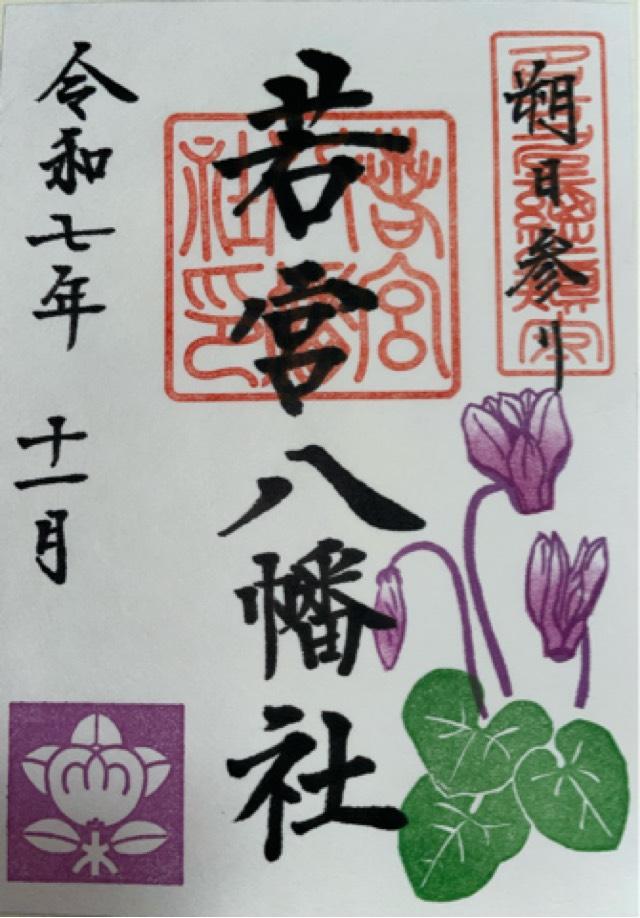 朔日参り
若宮八幡社
令和七年 十一月
若宮
社印